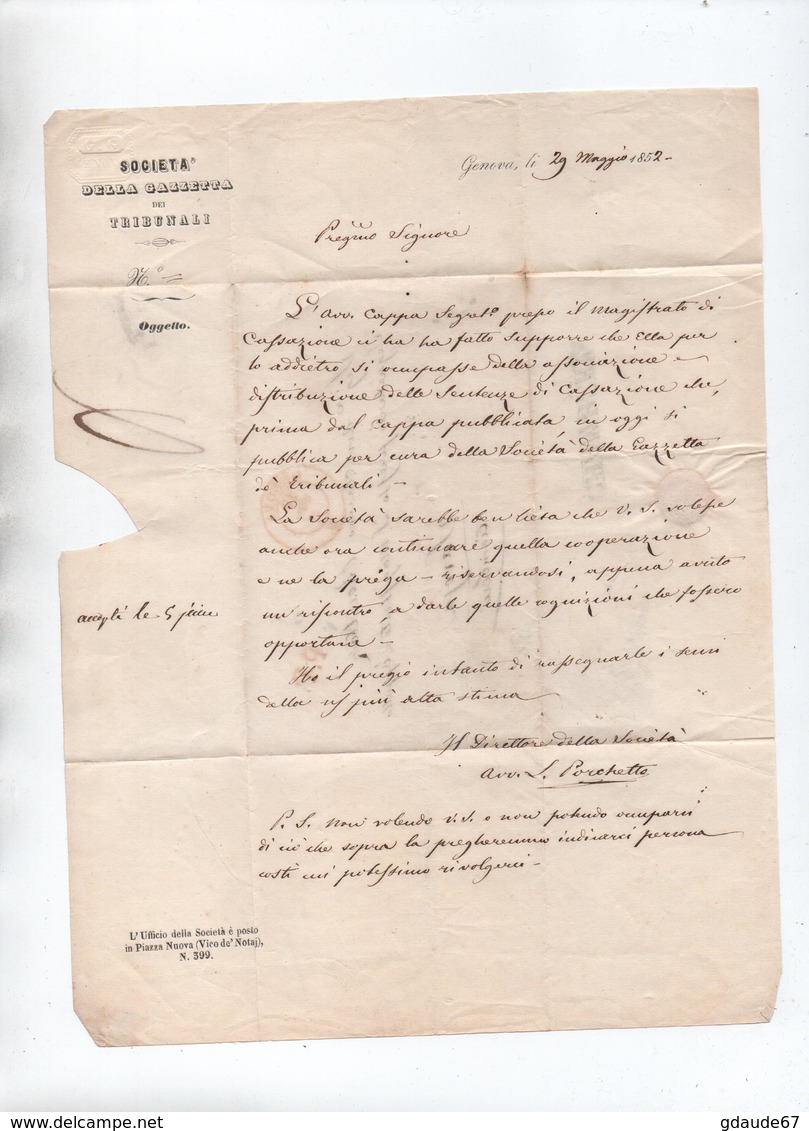 SOCIETA'
DELLA GAZZETTA
DEI
TRIBUNALI
N.° =
Oggetto.
Genova, li 29 Maggio 1852-
Pregmo Signore
L'avv. Cappa Segret.o presso il Magistrato di
Cassazione ci ha ha fatto supporre che Ella per
lo addietro si occupasse della associazione e
distribuzione delle Sentenze di Cassazione che,
prima dal Cappa pubblicata, in oggi si
pubblica per cura della Società della Gazzetta
de' Tribunali -
La Società sarebbe ben lieta che V. S. volesse
anche ora continuare quella cooperazione
e ne la prega - riservandosi, appena avuto
un riscontro, a darle quelle cognizioni che fossero
opportune -
accepté le 5 juin
Ho il pregio intanto di rassegnarle i sensi
della più alta stima
Il Direttore della Società
Avv. L. Porchetto
P. S. Non volendo V. S. o non potendo occuparsi
di ciò che sopra la pregheremmo indicarci persona
costì cui potessimo rivolgerci -
L'Ufficio della Società è posto
in Piazza Nuova (Vico de' Notaj),
N. 399.
delcampe.net
gdaude67